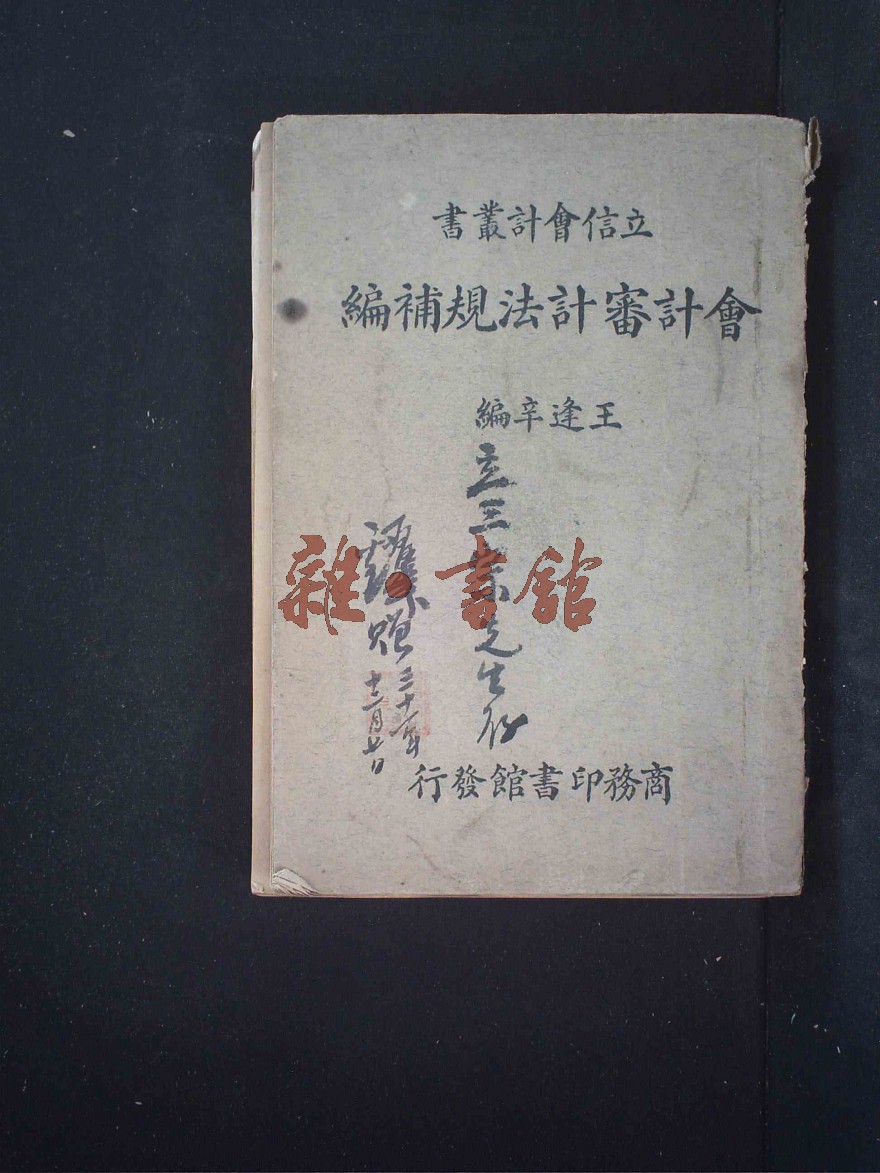 立信會計叢書
會計審計法規補編
王逢辛編
三宗先生存
贈
三十一年
十二月七日
商務印書館發行
雜·書館